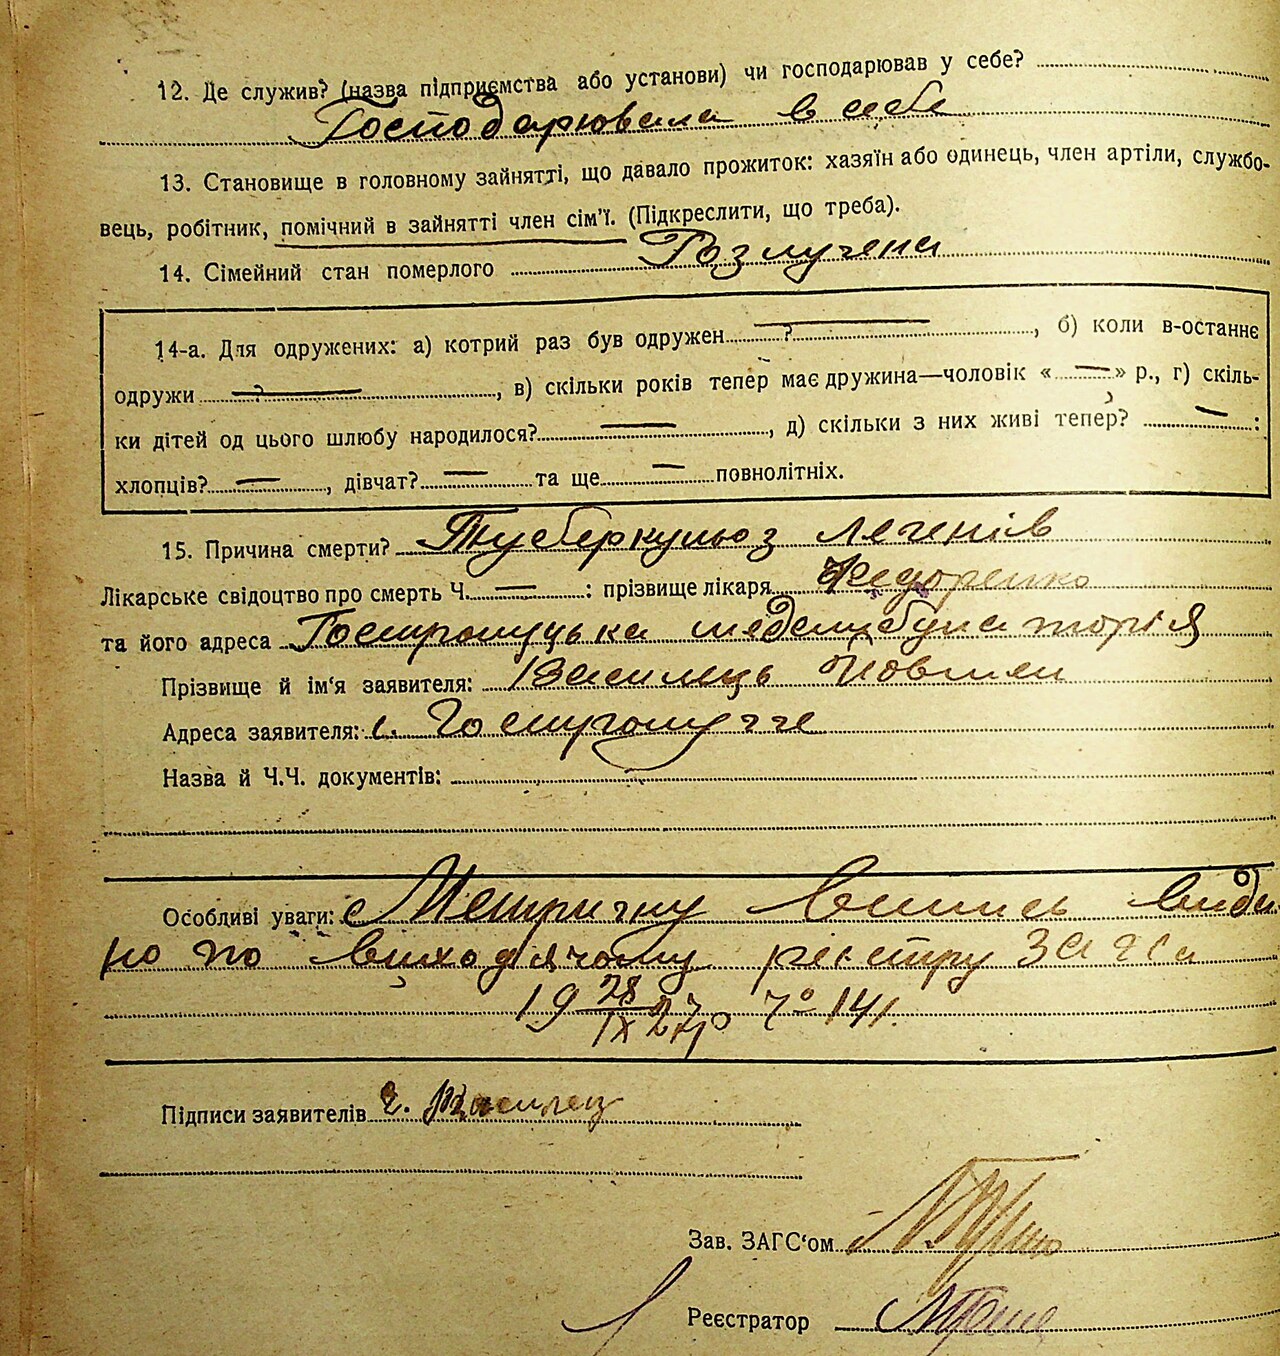 12. Де служив? (назва підприємства або установи) чи господарював у себе?
Господарювала в себе
13. Становище в головному зайнятті, що давало прожиток: хазяїн або одинець, член артілі, службо-
вець, робітник, помічний в зайнятті член сім'ї. (Підкреслити, що треба).
14. Сімейний стан померлого Розлучена
14-а. Для одружених: а) котрий раз був одружен ? —, б) коли в-останнє
одружи ? —, в) скільки років тепер має дружина—чоловік « — » р., г) скіль-
ки дітей од цього шлюбу народилося? —, д) скільки з них живі тепер? — :
хлопців? —, дівчат? — та ще — повнолітніх.
15. Причина смерти? Туберкульоз легенів
Лікарське свідоцтво про смерть Ч. — : прізвище лікаря Федоренко
та його адреса
Прізвище й ім'я заявителя: Василець
Адреса заявителя: с.
Назва й Ч.Ч. документів:
Особливі уваги: Метричну випись вида
но по виходячому реєстру ЗАГСа
19 28/IX 27 р № 141.
Підписи заявителів Василец
Зав. ЗАГС'ом
Реєстратор